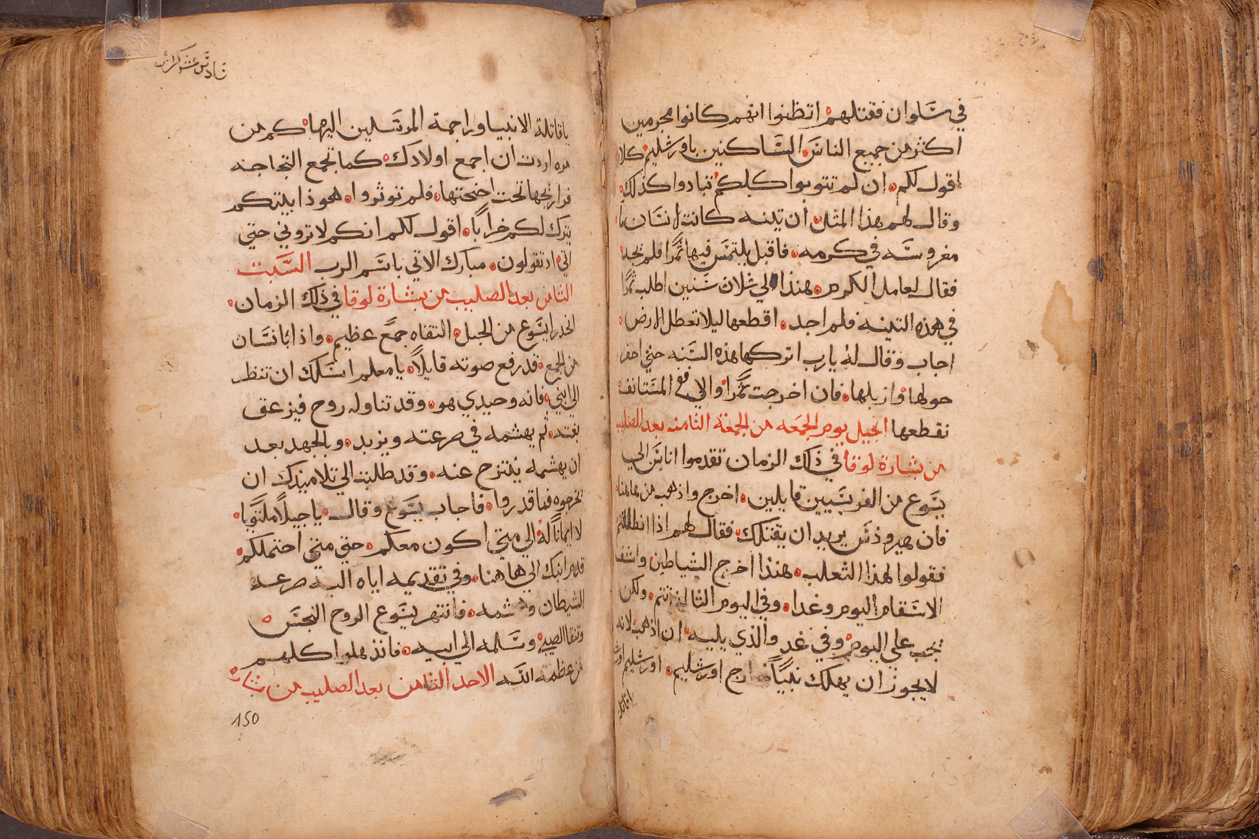 في سلوان فقتلهم اتظنوا انهم كانوا مجرمين
اكثر من جميع الناس الساكنين باورشليم كلا
اقول لكم ان لم تتوبوا كلكم تبادوا كذلك
وقال لهم هذا المثل ان تينه كانت لانسان
مغروسه في كرمه فاقبل يلتمس فيها ثمرًا فلم يجد
فقال لعامل الكرم هذا لي ثلاث سنين اطلب ثمرًا
في هذه التينه فلم اجد اقطعها ليلا تعطل الارض
اجاب وقال له يارب اتركها هذه السنه حتى احفر
حولها وازبلها فان اخرجت ثمرًا والا ففي المستانف
نقطعها انجيل يوم الجمعه من الجمعة الثامنه بعد الصليب
من بشارة لوقا في ذلك الزمان تقدموا اناس الى
يسوع من الفريسيين قايلين اخرج واذهب من هاهنا
فان هيرودس يريد ان يقتلك فقال لهم اذا انطلقتم
فقولوا لهذا الثعلب هذا اخرج الشياطين واشفا
الاسقام اليوم وغدا وفي اليوم الثالث اتم ولكن
يجب علي اليوم وفي غد والذي يليه ان اذهب لانه
لا يجوز ان يهلك نبيًا خارج اورشليم اورشليم
يا قاتله
سادس عشر كراس
يا قاتلة الانبيا وراجمة المرسلين اليها كم من
مره اردت ان اجمع اولادك كما تجمع الدجاجه
فراريجها تحت اجنحتها فلم توثروا هوذا بيتكم
يترك لكم خرابًا اقول لكم انكم لا تروني حتى
اذ تقولون مبارك الاتي باسم الرب السبت
الثامن بعد الصليب من بشارة لوقا في ذلك الزمان
انحدر يسوع من الجبل التقاه جمع عظيم واذا بانسان
من الجمع قد رفع صوته قايلاً يا معلم اسلك ان تنظر
الى ابني فانه وحيدي هو وقد تناوله روح فيزعق
بغته ثم يهشمه في صرعته ويزبد وبالجهد بعد
ان يهشمه ينتزح عنه وقد طلبت الى تلاميدك ان
يخرجوه فما قدروا فاجاب يسوع وقال يا جيلًا ملتويا
لا ايمانًا له الى متى اكون معكم حتى متى احتملكم
قدم ابنك الى هاهنا وفي تقديمه اياه اليه صرعه
الشيطان وهشمه فانتهر يسوع الروح النجس
وشفا الصبي وسلمه الى ابيه فانذهلوا كلهم
من عظمة الله الاحد الثامن بعد الصليب من بشاره
150